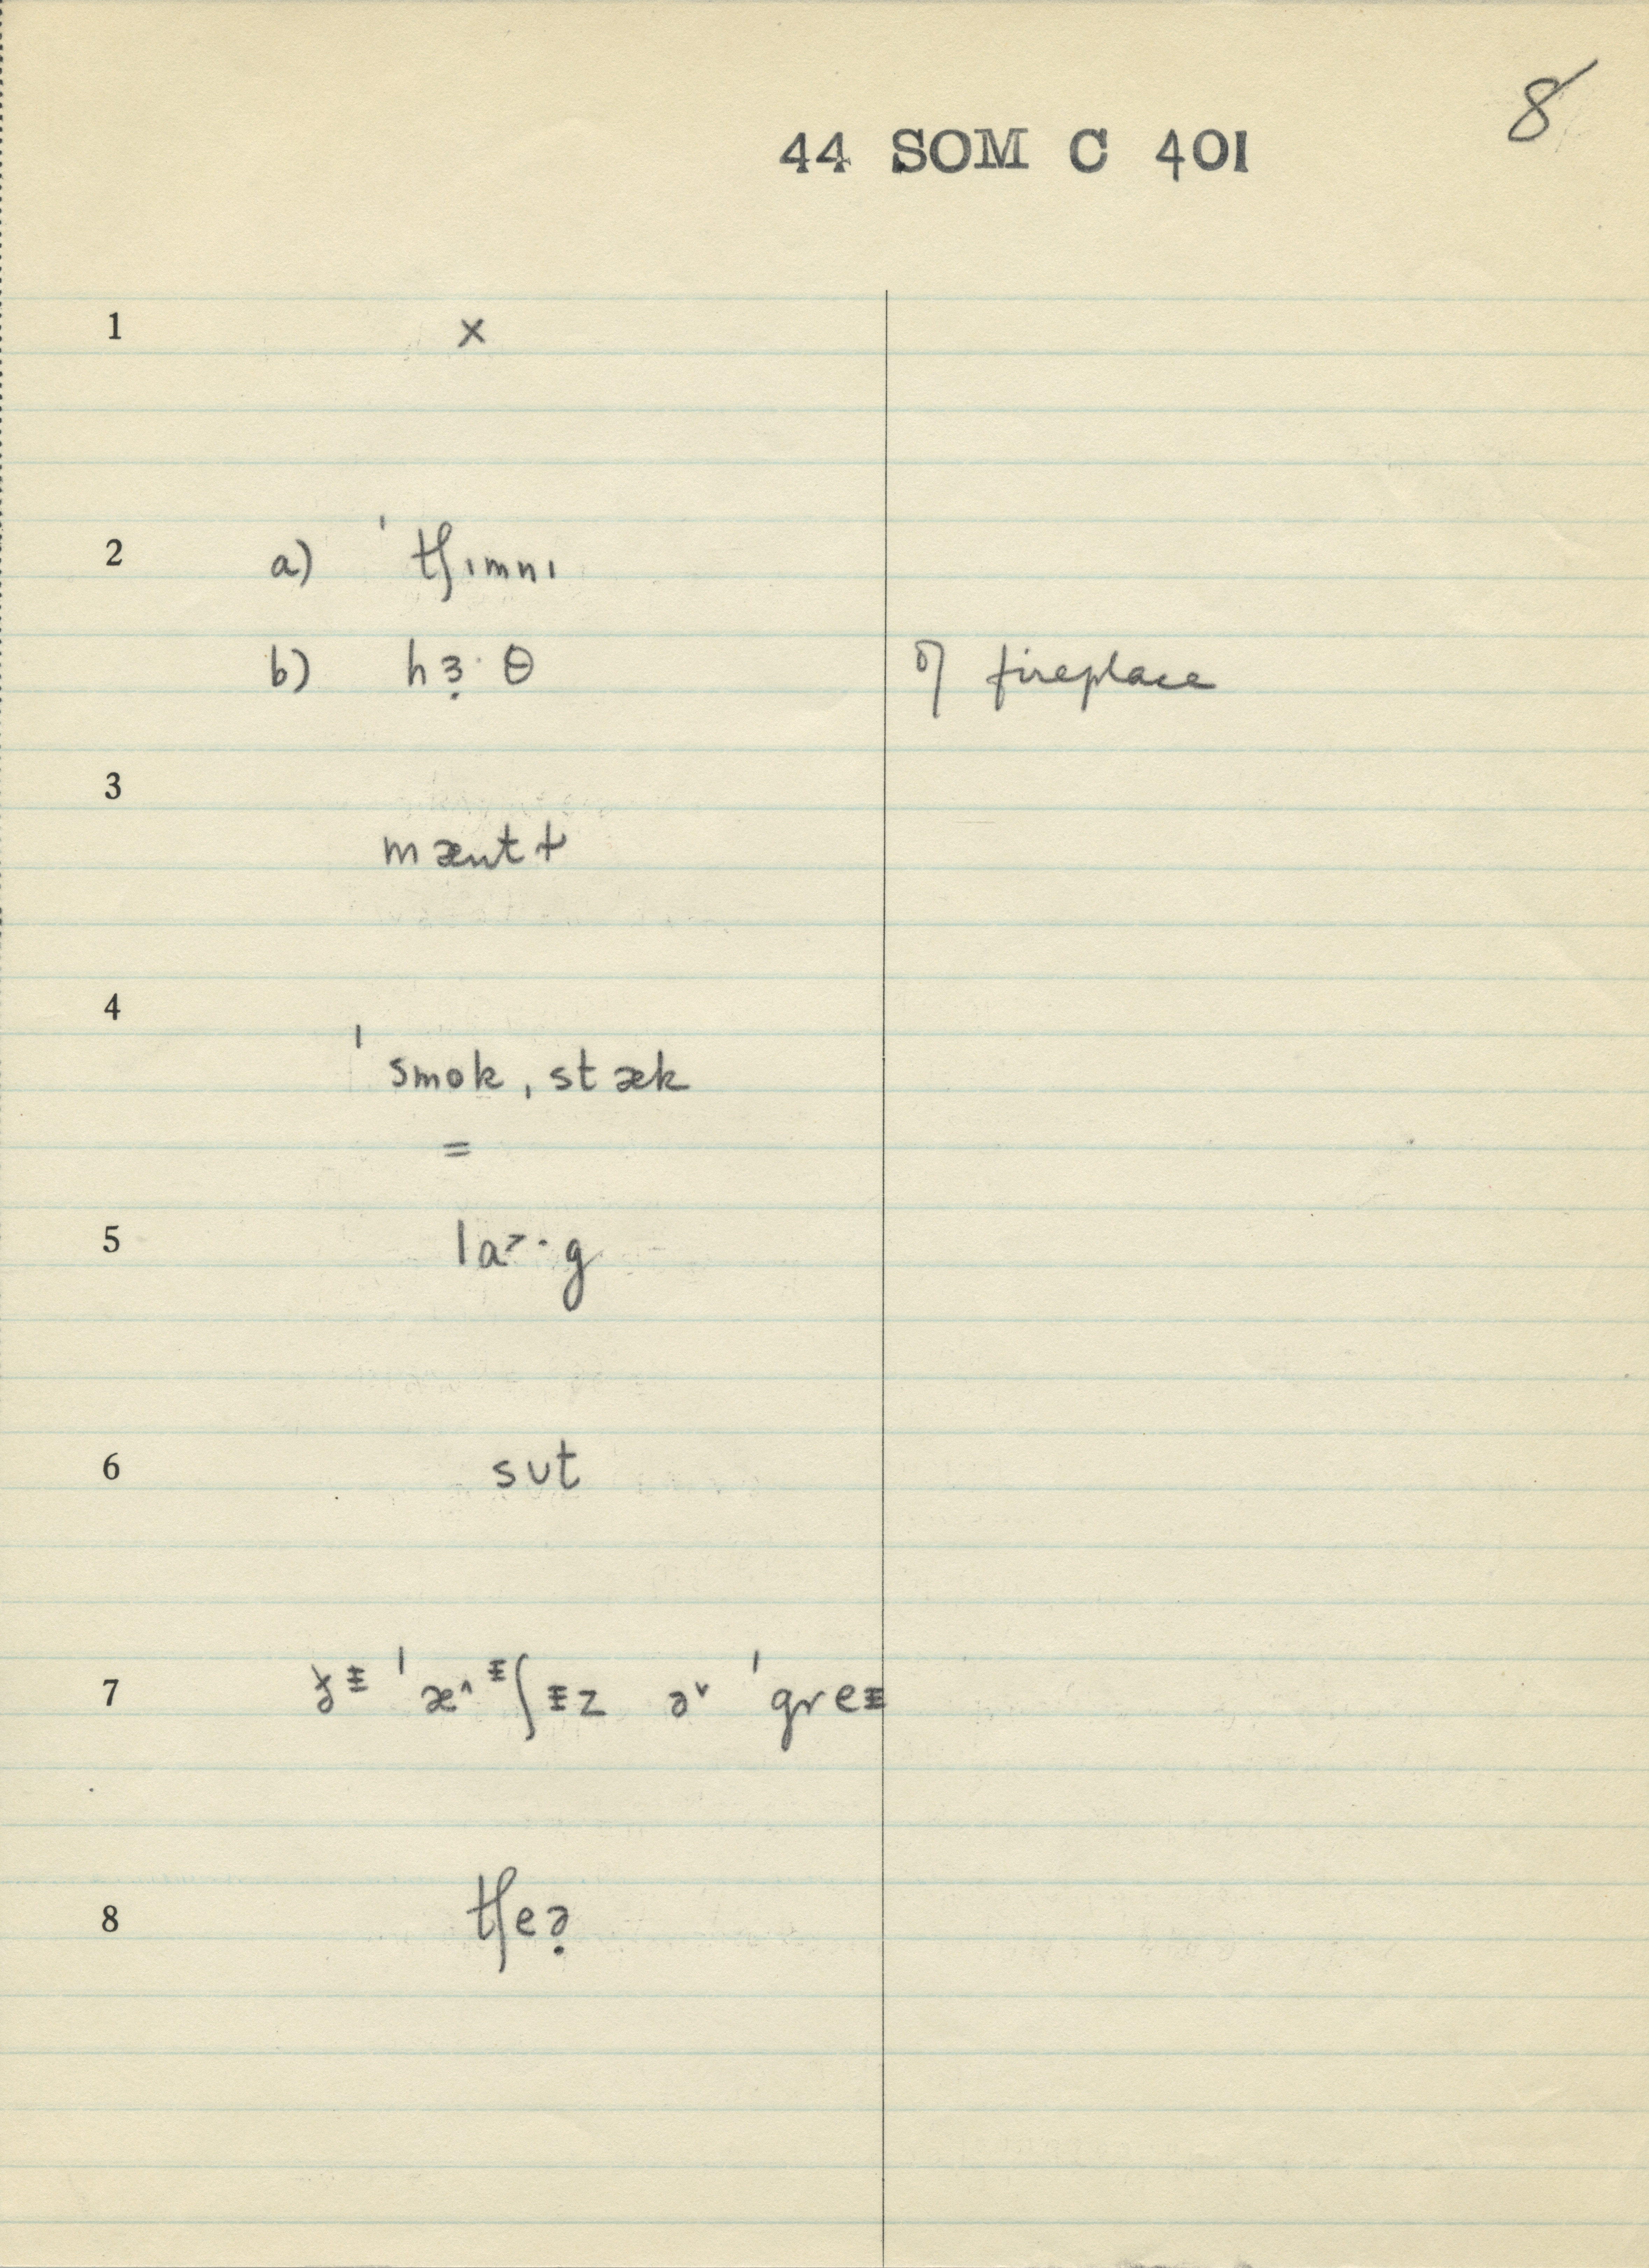 8
44 SOM C 401
1 ×
2 a) ˈtʃɪmnɪ
b) hɜ̣· θ of fireplace
3 mæntɫ
4 ˈsmokˌstæk
=
5 la˃·g
6 sʊt
7 ðᵻ ˈæ^ᵻʃᵻz ə˅ ˈgreᵻ
8 tʃeə̣